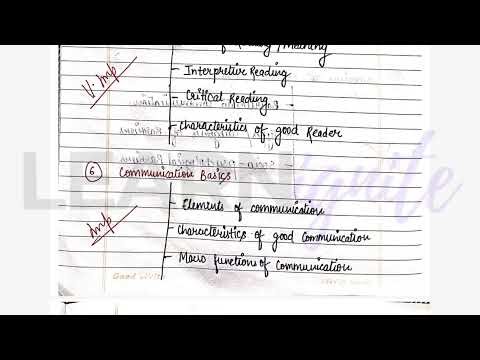 of Reading / Meaning
- Interpretive Reading
V. Imp
- Critical Reading
- Characteristics of good Reader
LEARN ignite
6 Communication Basics
- Elements of communication
Imp
- Characteristics of good Communication
- Macro functions of Communication
Good LIVIN